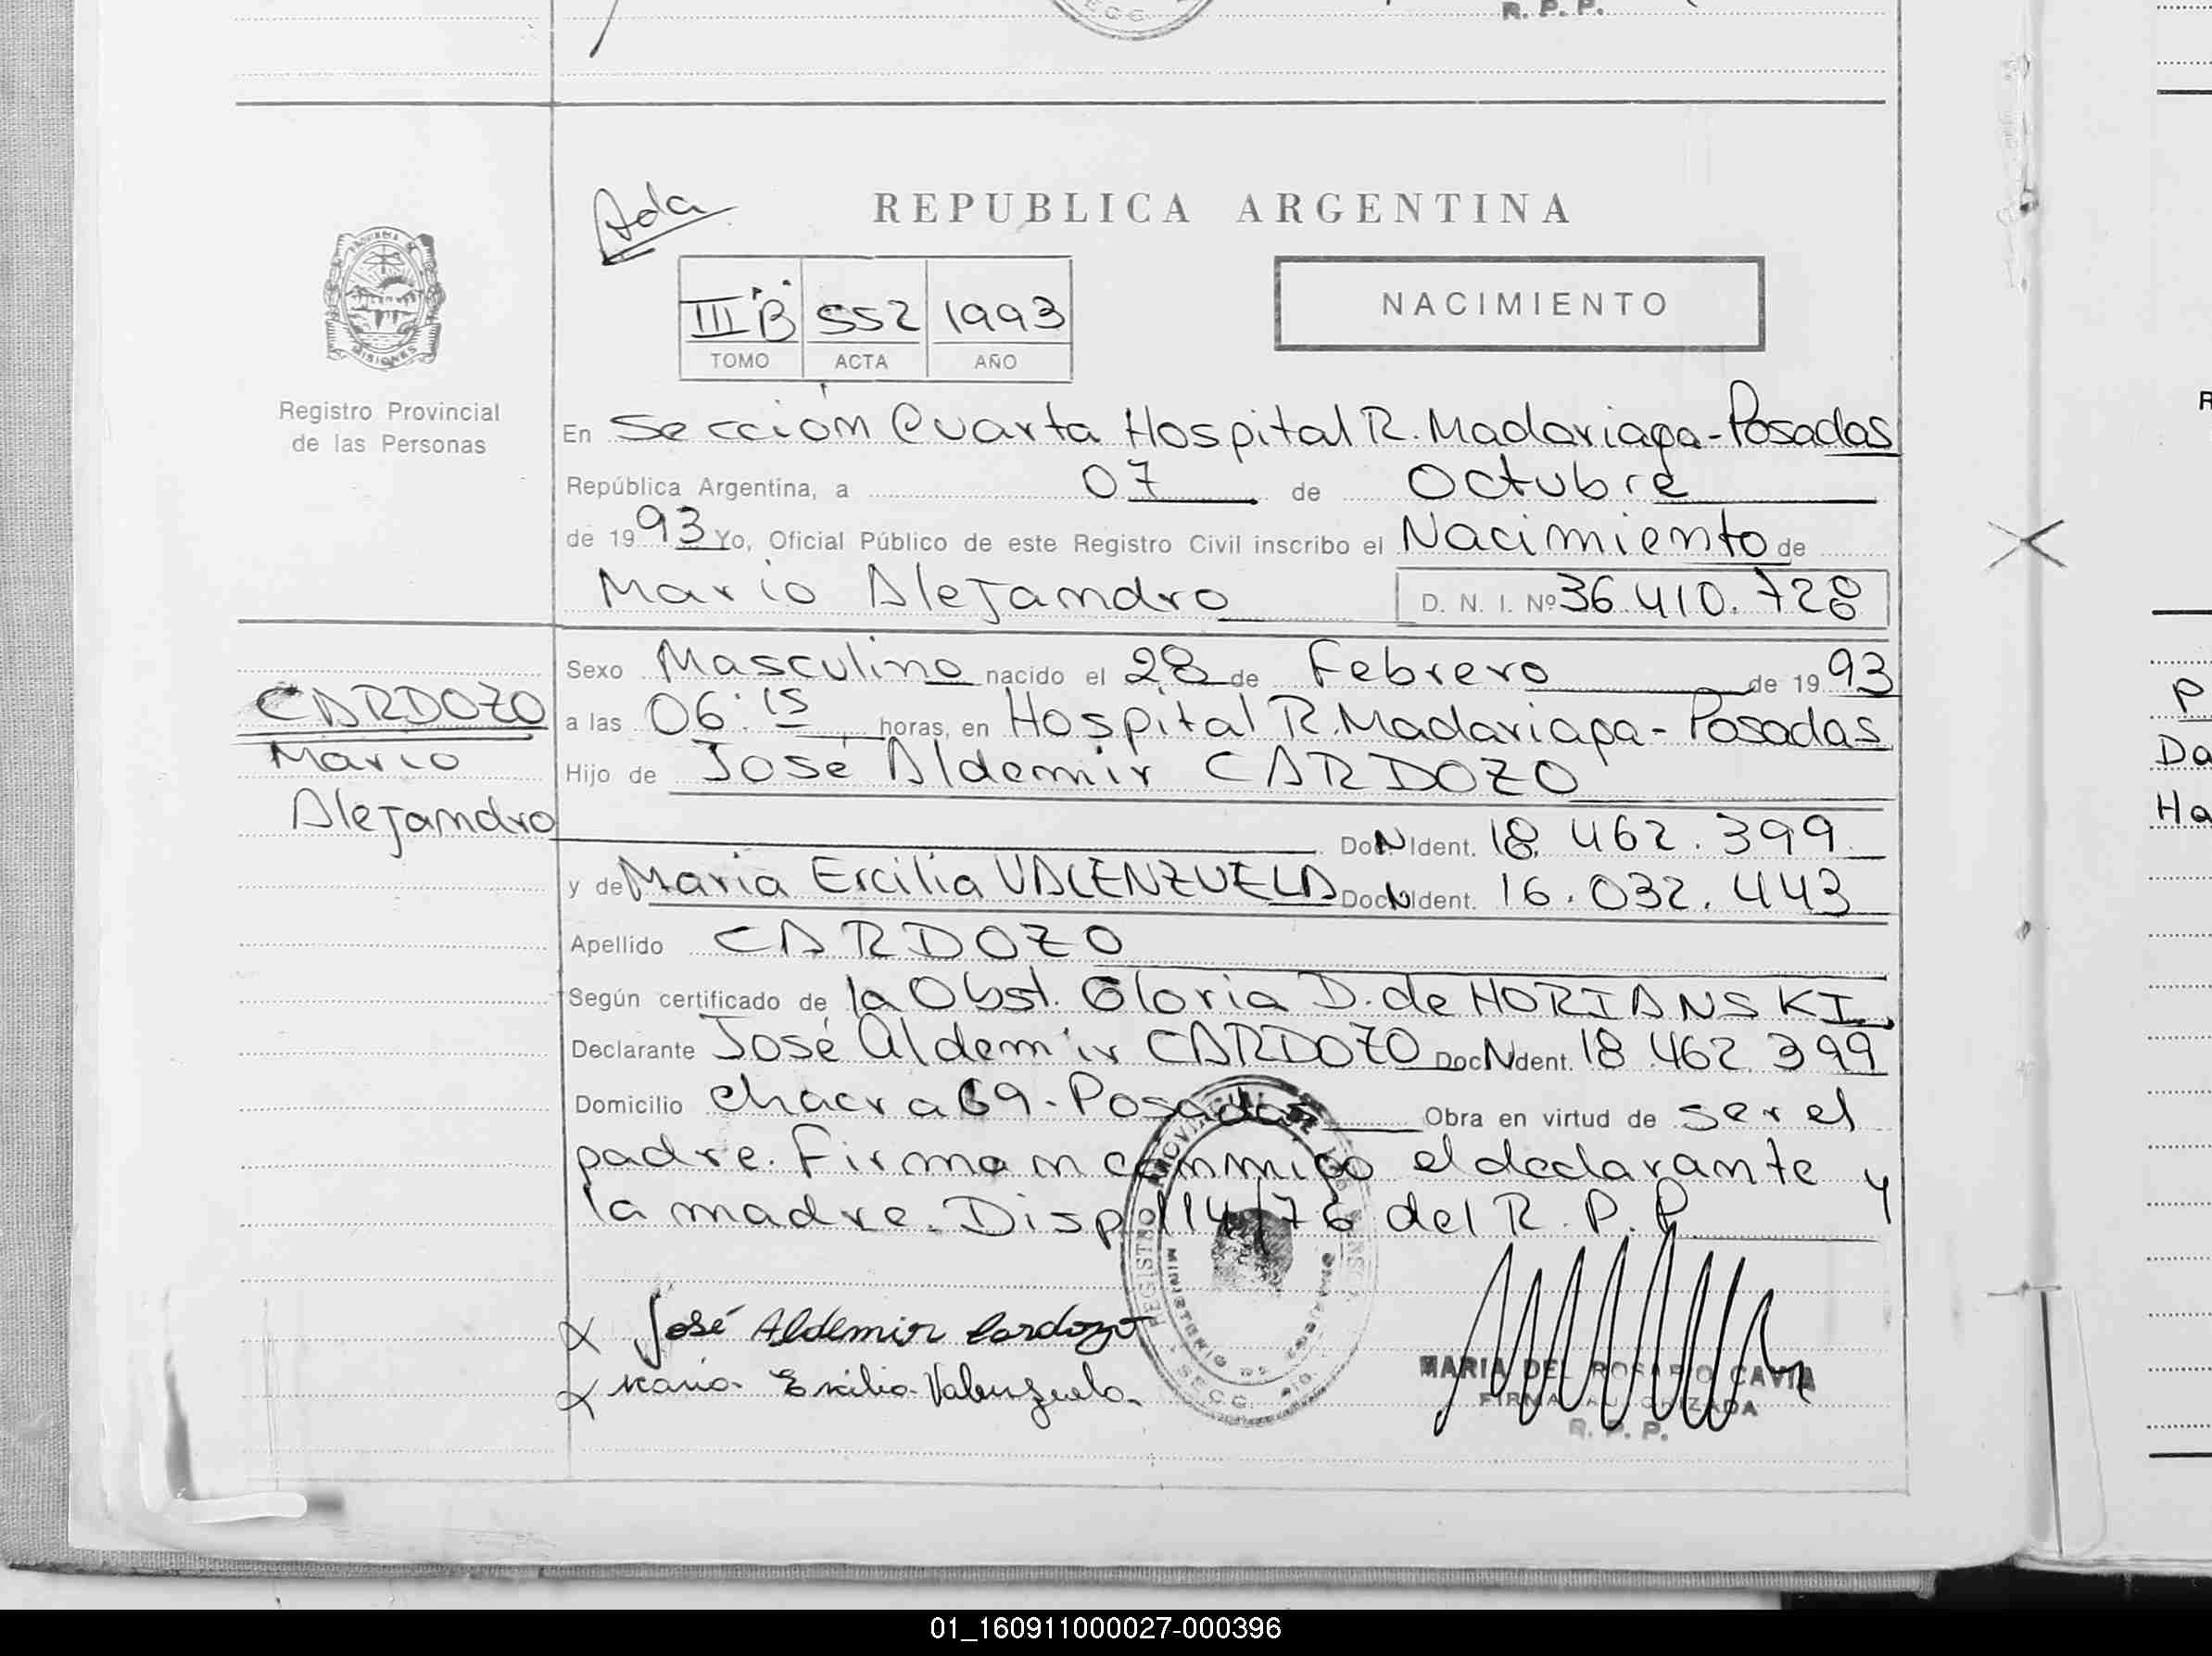 R. P. P.
Ada
REPUBLICA ARGENTINA
III "B" 552 1993
TOMO ACTA AÑO
NACIMIENTO
MISIONES
Registro Provincial
de las Personas
En Sección Cuarta Hospital R. Madariaga - Posadas
República Argentina, a 07 de Octubre
de 1993 Yo, Oficial Público de este Registro Civil inscribo el Nacimiento de
Mario Alejandro D. N. I. Nº 36.410.728
Sexo Masculino nacido el 28 de Febrero de 1993
CARDOZO
Mario
Alejandro
a las 06:15 horas, en Hospital R. Madariaga - Posadas
Hijo de José Aldemir CARDOZO
Doc. N Ident. 18.462.399
y de Maria Ercilia VALENZUELA Doc. N Ident. 16.032.443
Apellido CARDOZO
Según certificado de la Obst. Gloria D. de HORIANSKI.
Declarante José Aldemir CARDOZO Doc. N Ident. 18.462.399
Domicilio chacra 69 - Posadas Obra en virtud de ser el
padre. Firman conmigo el declarante y
la madre. Disp. 114/76 del R. P. P.
José Aldemir Cardozo
Maria Ercilia Valenzuela
MARIA DEL ROSARIO CAVIA
FIRMA AUTORIZADA
R. P. P.
P
Da
Ha
01_160911000027-000396